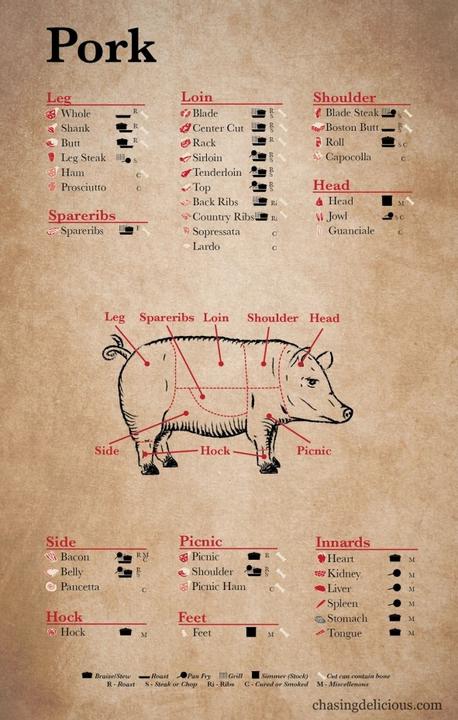 Pork
Leg
Whole R
Shank R
Butt R
Leg Steak S
Ham C
Prosciutto C
Spareribs
Spareribs
Loin
Blade
Center Cut
Rack
Sirloin
Tenderloin
Top
Back Ribs Ri
Country Ribs
Sopressata C
Lardo C
Shoulder
Blade Steak S
Boston Butt
Roll S C
Capocolla C
Head
Head M
Jowl S C
Guanciale C
Leg Spareribs Loin Shoulder Head
Side Hock Picnic
Side
Bacon
Belly
Pancetta C
Hock
Hock M
Picnic
Picnic R
Shoulder R S
Picnic Ham C
Feet
Feet M
Innards
Heart M
Kidney M
Liver M
Spleen M
Stomach M
Tongue M
Braise/Stew Roast Pan Fry Grill Simmer (Stock) Cut can contain bone
R - Roast S - Steak or Chop Ri - Ribs C - Cured or Smoked M - Miscellenous
chasingdelicious.com